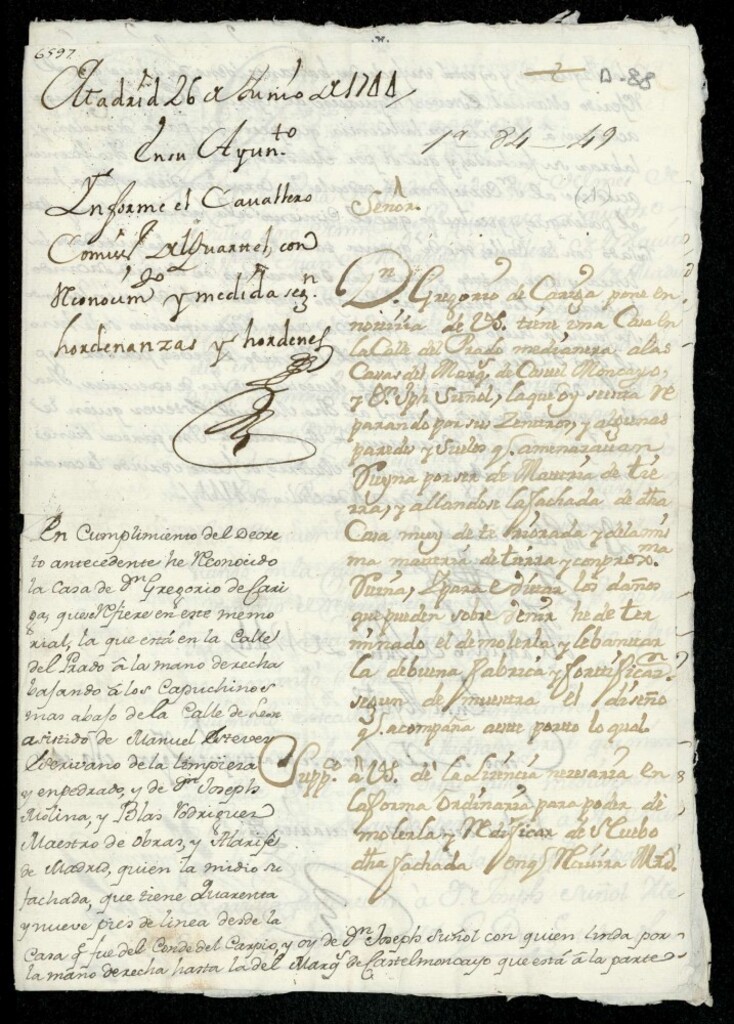 6597
2
A-88
Madrid 26 de Junio de 1744
En su Ayun.to
1ª 84 – 49
Informe el Cavallero
Comiss.º del Quartel, con
Reconocim.to y medida seg.n
hordenanzas y hordenes
Señor.
D.n Gregorio de Cariga pone en
noticia de VS. tiene una Casa en
la Calle del Prado medianera a las
Casas del Marq.s de Castel Moncayo,
y D.n Jph Suñol, la que oy se esta re
parando por sus Zentros, y algunas
paredes y suelos q.e amenazavan
Ruyna por ser de Materia de tie
rra, y allandose la fachada de dha
Casa muy deteriorada y de la mis
ma materia de tierra y con prox.ma
Ruina, y para evitar los daños
que pueden sobre venir he deter
minado el demolerla y lebantar
la de buena fabrica y fortificaz.on
segun demuestra el diseño
q.e acompaña a este por to lo qual
Supp.co a VS. de la Lizencia nezesaria en
la forma Ordinaria para poder de
molerla y Redificar de Nuebo
dha fachada en q.e Reziura Mrd.
En Cumplimiento del Decre
to antecedente he Reconocido
la Casa de D.n Gregorio de Cari
ga, que Refiere en este memo
rial, la que está en la Calle
del Prado á la mano derecha
bajando á los Capuchinos
mas abajo de la Calle de Leon
asistido de Manuel Estevez
Escrivano de la limpieza
y empedrado, y de D.n Joseph
Molina, y Blas Rodriguez
Maestro de obras, y Alarife
de Madrid, quien la midio su
fachada, que tiene Quarenta
y nueve pies de linea desde la
Casa q.e fue del Conde del Carpio, y oy de D.n Joseph Suñol con quien linda por
la mano derecha hasta la del Marq.s de Castelmoncayo que está á la parte